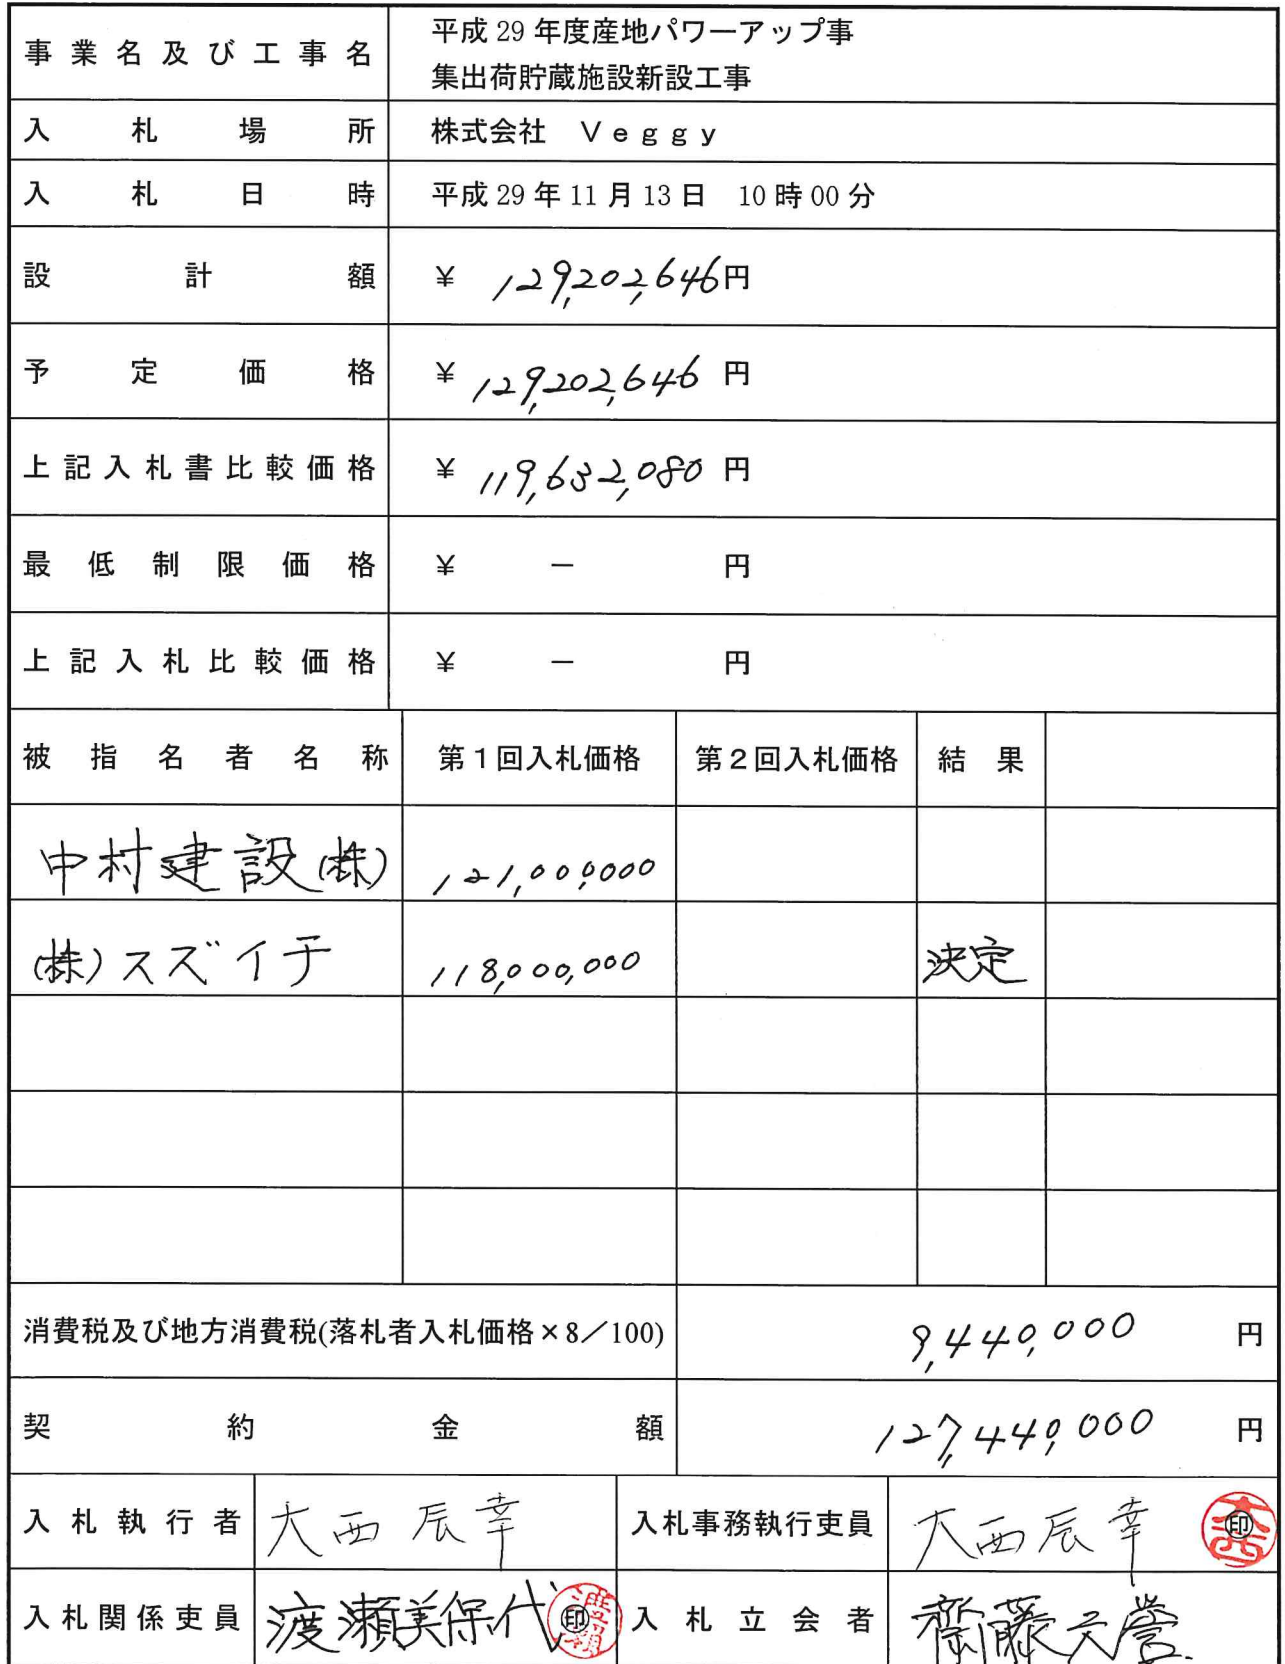 事業名及び工事名 平成29年度産地パワーアップ事
集出荷貯蔵施設新設工事
入札場所 株式会社 Veggy
入札日時 平成29年11月13日 10時00分
設計額 ¥ 129,202,646円
予定価格 ¥ 129,202,646 円
上記入札書比較価格 ¥ 119,632,080 円
最低制限価格 ¥ － 円
上記入札比較価格 ¥ － 円
被指名者名称 第1回入札価格 第2回入札価格 結果
中村建設(株) 121,000,000
(株)スズイチ 118,000,000 決定
消費税及び地方消費税(落札者入札価格×8／100) 9,440,000 円
契約金額 127,440,000 円
入札執行者 大西辰幸 入札事務執行吏員 大西辰幸 印
入札関係吏員 渡瀬美保代 印 入札立会者 齋藤